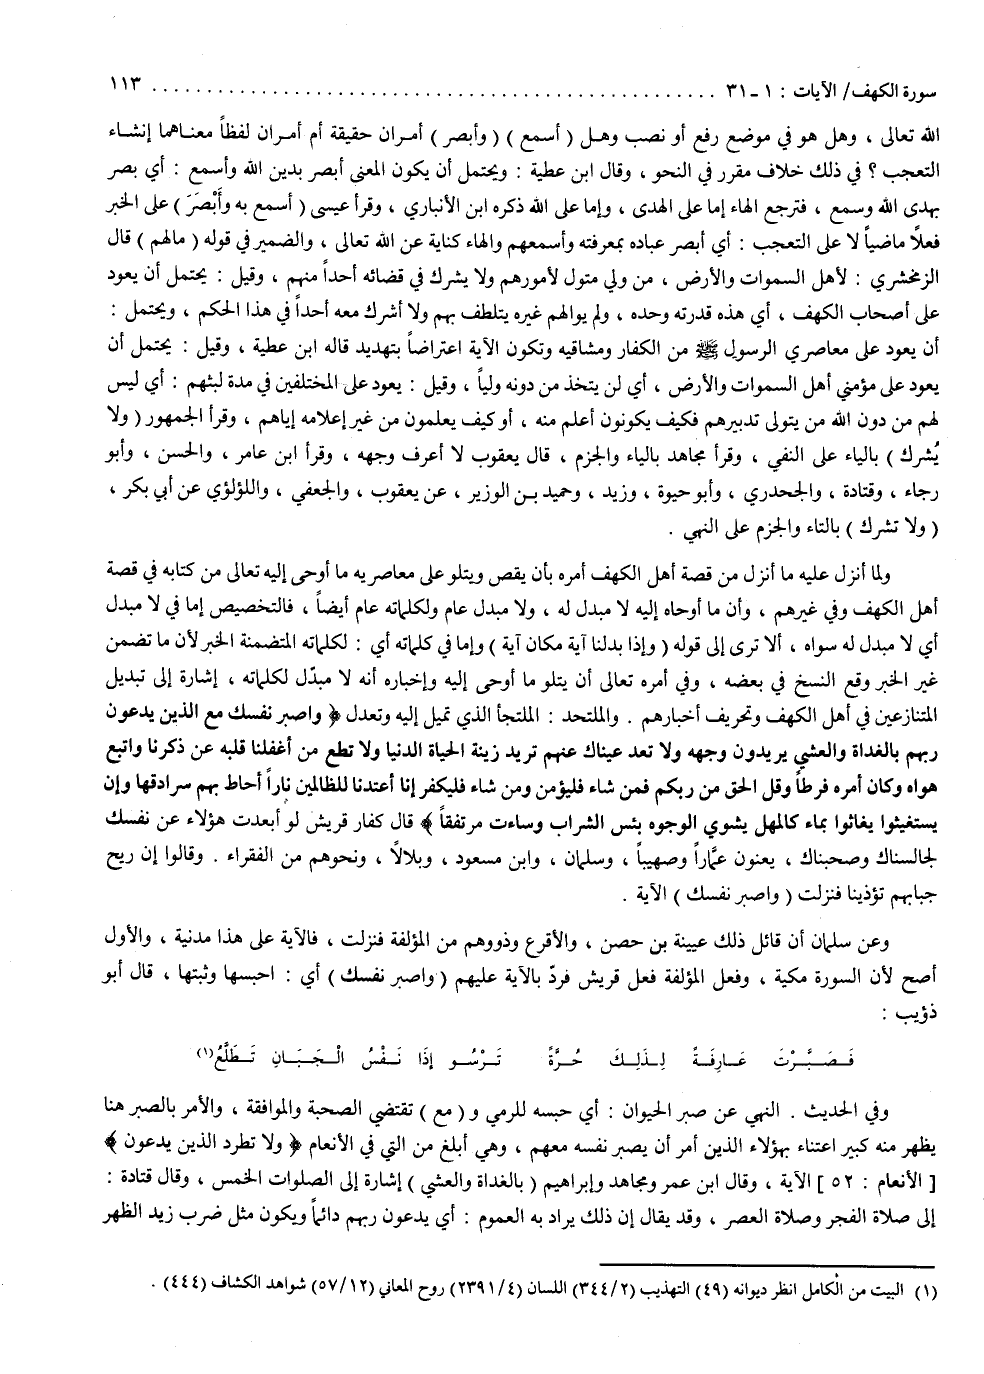 سورة الكهف/ الآيات : ١ ـ ٣١ .................................................. ١١٣
الله تعالى ، وهل هو في موضع رفع أو نصب وهل ( أسمع ) ( وأبصر ) أمران حقيقة أم أمران لفظاً معناهما إنشاء
التعجب ؟ في ذلك خلاف مقرر في النحو ، وقال ابن عطية : ويحتمل أن يكون المعنى أبصر بدين الله وأسمع : أي بصر
بهدى الله وسمع ، فترجع الهاء إما على الهدى ، وإما على الله ذكره ابن الأنباري ، وقرأ عيسى ( أسمع به وأَبْصَرَ ) على الخبر
فعلاً ماضياً لا على التعجب : أي أبصر عباده بمعرفته وأسمعهم والهاء كناية عن الله تعالى ، والضمير في قوله ( مالهم ) قال
الزمخشري : لأهل السموات والأرض ، من ولي متول لأمورهم ولا يشرك في قضائه أحداً منهم ، وقيل : يحتمل أن يعود
على أصحاب الكهف ، أي هذه قدرته وحده ، ولم يوالهم غيره يتلطف بهم ولا أشرك معه أحداً في هذا الحكم ، ويحتمل :
أن يعود على معاصري الرسول ﷺ من الكفار ومشاقيه وتكون الآية اعتراضاً بتهديد قاله ابن عطية ، وقيل : يحتمل أن
يعود على مؤمني أهل السموات والأرض ، أي لن يتخذ من دونه ولياً ، وقيل : يعود على المختلفين في مدة لبثهم : أي ليس
لهم من دون الله من يتولى تدبيرهم فكيف يكونون أعلم منه ، أو كيف يعلمون من غير إعلامه إياهم ، وقرأ الجمهور ( ولا
يُشرك ) بالياء على النفي ، وقرأ مجاهد بالياء والجزم ، قال يعقوب لا أعرف وجهه ، وقرأ ابن عامر ، والحسن ، وأبو
رجاء ، وقتادة ، والجحدري ، وأبو حيوة ، وزيد ، وحميد بن الوزير ، عن يعقوب ، والجعفي ، واللؤلؤي عن أبي بكر ،
( ولا تشرك ) بالتاء والجزم على النهي .
ولما أنزل عليه ما أنزل من قصة أهل الكهف أمره بأن يقص ويتلو على معاصريه ما أوحى إليه تعالى من كتابه في قصة
أهل الكهف وفي غيرهم ، وأن ما أوحاه إليه لا مبدل له ، ولا مبدل عام ولكلماته عام أيضاً ، فالتخصيص إما في لا مبدل
أي لا مبدل له سواه ، ألا ترى إلى قوله ( وإذا بدلنا آية مكان آية ) وإما في كلماته أي : لكلماته المتضمنة الخبر لأن ما تضمن
غير الخبر وقع النسخ في بعضه ، وفي أمره تعالى أن يتلو ما أوحى إليه وإخباره أنه لا مبدّل لكلماته ، إشارة إلى تبديل
المتنازعين في أهل الكهف وتحريف أخبارهم . والملتحد : الملتجأ الذي تميل إليه وتعدل ﴿ واصبر نفسك مع الذين يدعون
ربهم بالغداة والعشي يريدون وجهه ولا تعد عيناك عنهم تريد زينة الحياة الدنيا ولا تطع من أغفلنا قلبه عن ذكرنا واتبع
هواه وكان أمره فرطاً وقل الحق من ربكم فمن شاء فليؤمن ومن شاء فليكفر إنا أعتدنا للظالمين ناراً أحاط بهم سرادقها وإن
يستغيثوا يغاثوا بماء كالمهل يشوي الوجوه بئس الشراب وساءت مرتفقاً ﴾ قال كفار قريش لو أبعدت هؤلاء عن نفسك
لجالسناك وصحبناك ، يعنون عمَّاراً وصهيباً ، وسلمان ، وابن مسعود ، وبلالاً ، ونحوهم من الفقراء . وقالوا إن ريح
جبابهم تؤذينا فنزلت ( واصبر نفسك ) الآية .
وعن سلمان أن قائل ذلك عيينة بن حصن ، والأقرع وذووهم من المؤلفة فنزلت ، فالآية على هذا مدنية ، والأول
أصح لأن السورة مكية ، وفعل المؤلفة فعل قريش فردّ بالآية عليهم ( واصبر نفسك ) أي : احبسها وثبتها ، قال أبو
ذؤيب :
فَصَبَّرْتَ عَارِفَةً لِذَلِكَ حُرَّةً تَرْسُو إذَا نَفْسُ الْجَبَانِ تَطَلَّعُ(١)
وفي الحديث . النهي عن صبر الحيوان : أي حبسه للرمي و ( مع ) تقتضي الصحبة والموافقة ، والأمر بالصبر هنا
يظهر منه كبير اعتناء بهؤلاء الذين أمر أن يصبر نفسه معهم ، وهي أبلغ من التي في الأنعام ﴿ ولا تطرد الذين يدعون ﴾
[ الأنعام : ٥٢ ] الآية ، وقال ابن عمر ومجاهد وإبراهيم ( بالغداة والعشي ) إشارة إلى الصلوات الخمس ، وقال قتادة :
إلى صلاة الفجر وصلاة العصر ، وقد يقال إن ذلك يراد به العموم : أي يدعون ربهم دائماً ويكون مثل ضرب زيد الظهر
(١) البيت من الكامل انظر ديوانه (٤٩) التهذيب (٣٤٤/٢) اللسان (٢٣٩١/٤) روح المعاني (٥٧/١٢) شواهد الكشاف (٤٤٤) .